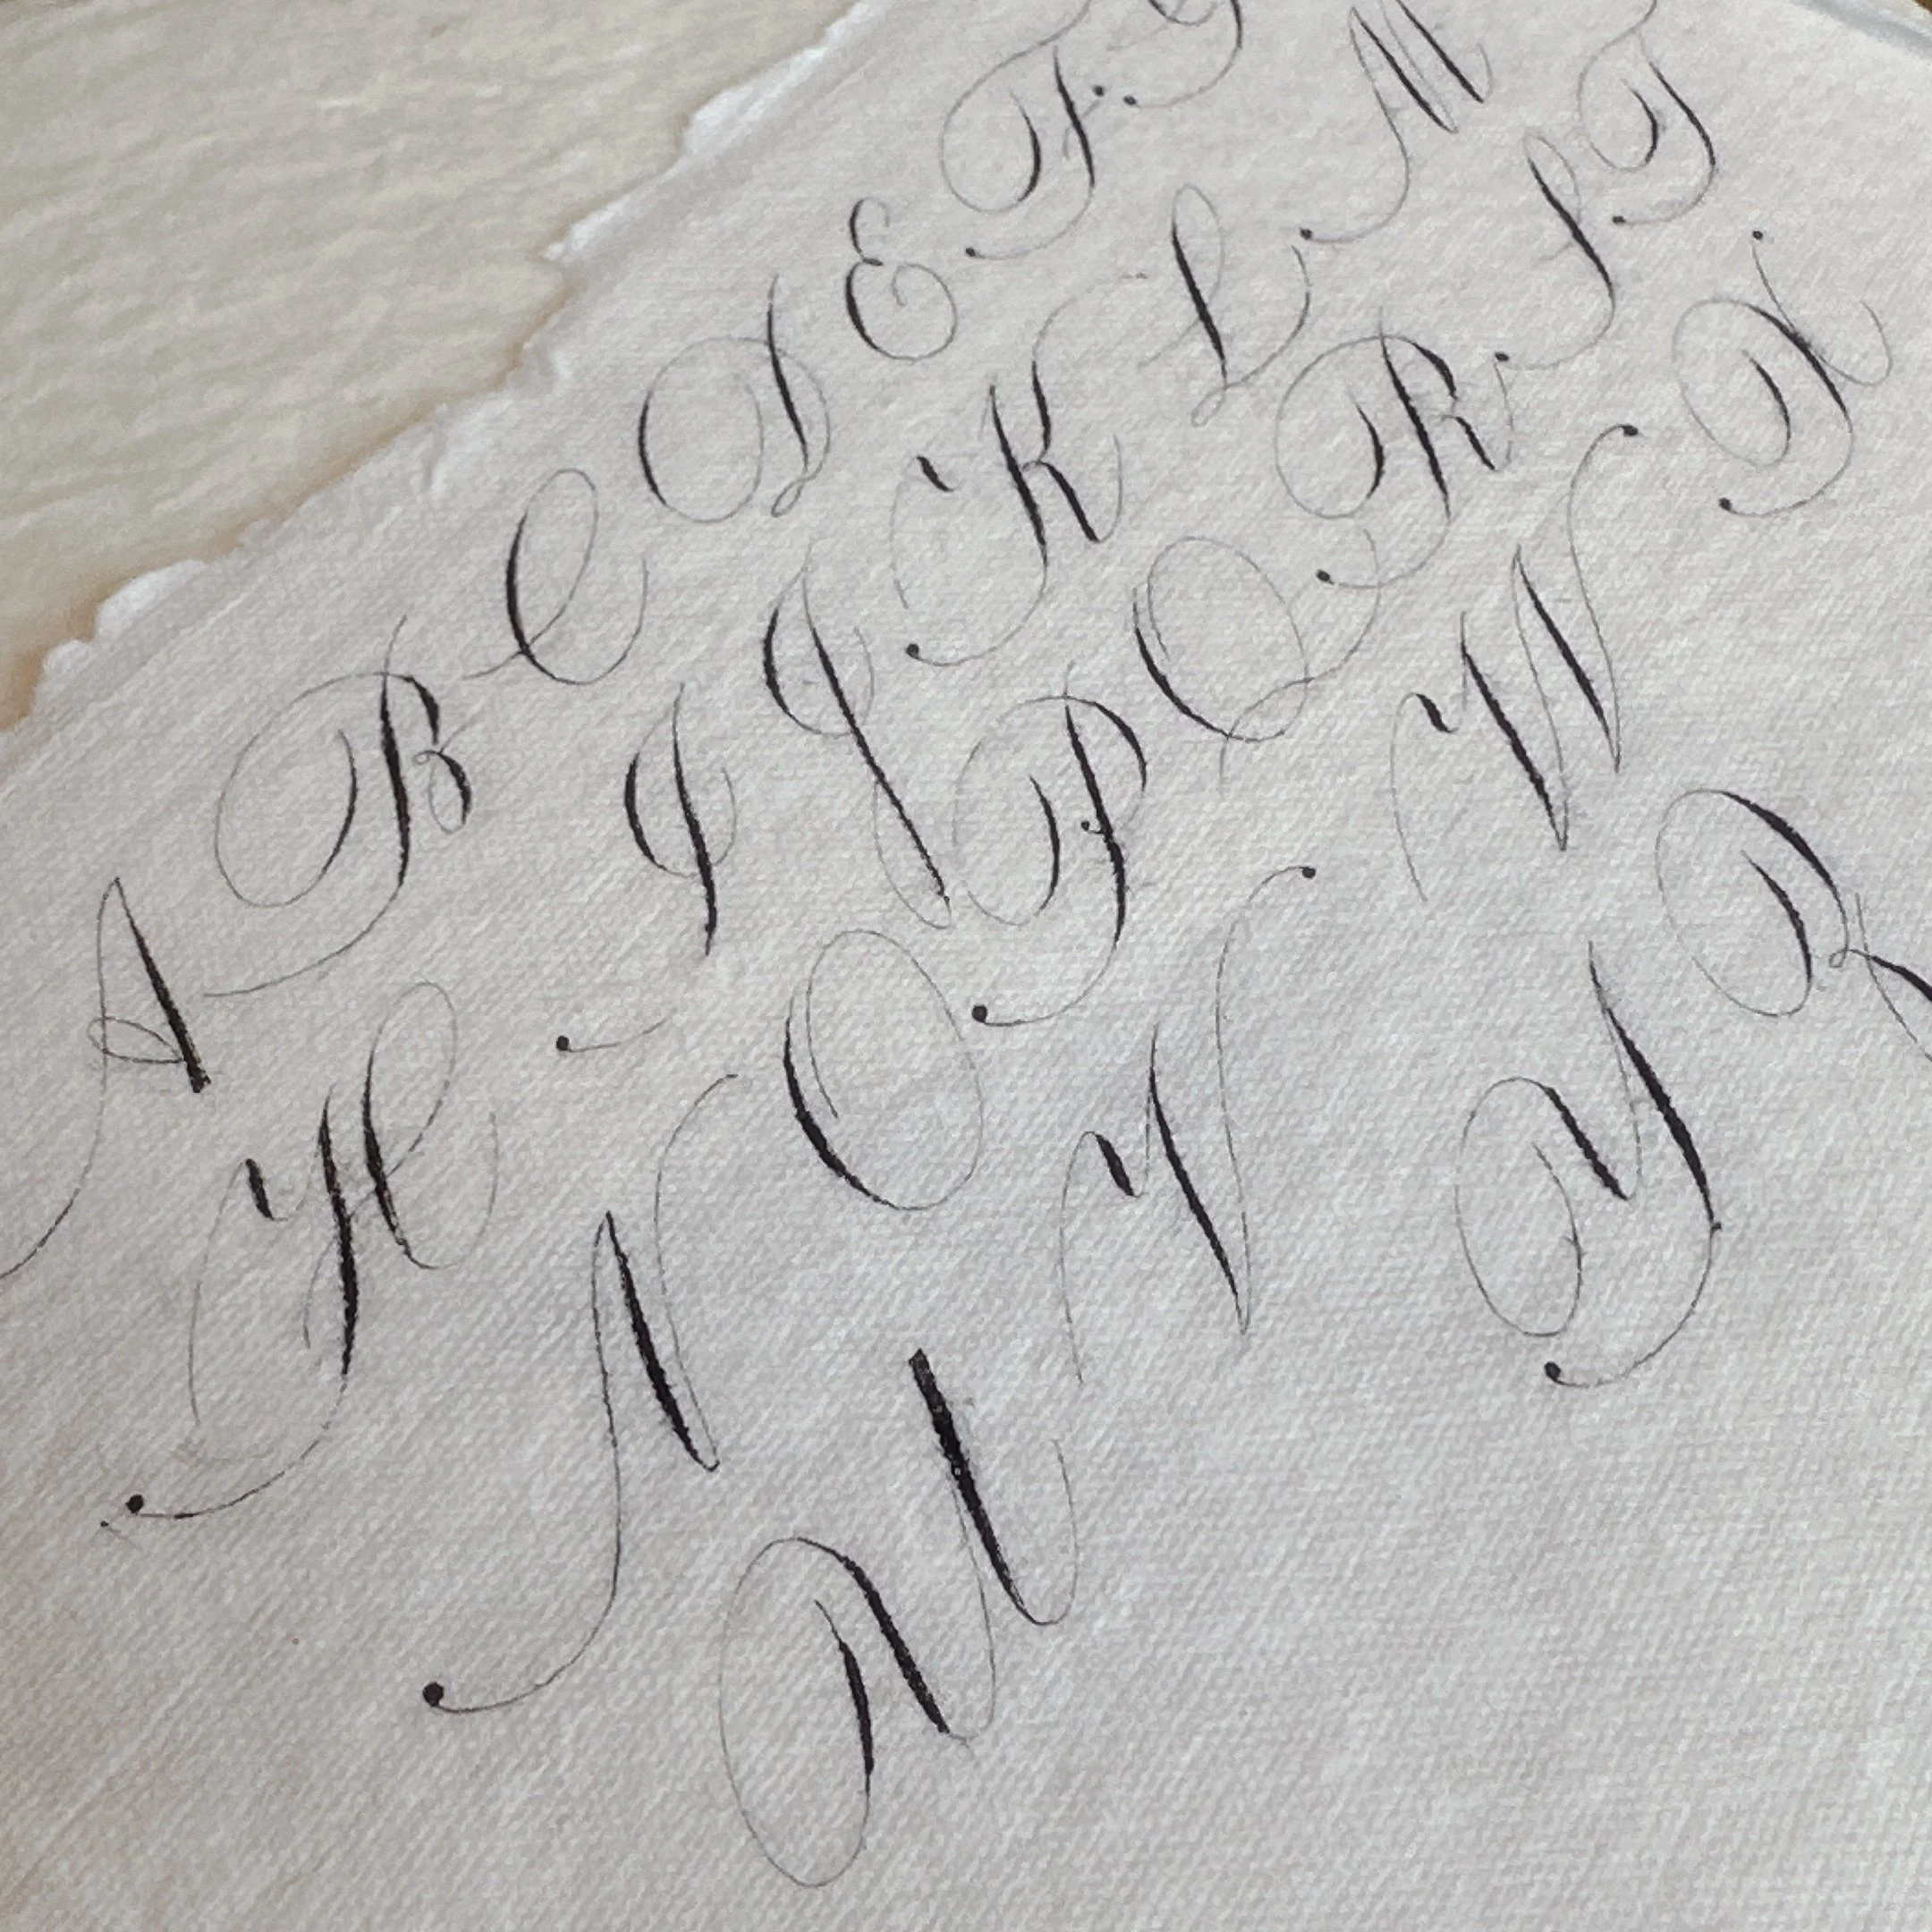 A B C D E F G
H I J K L M
N O P Q R S T
U V W X
Y Z